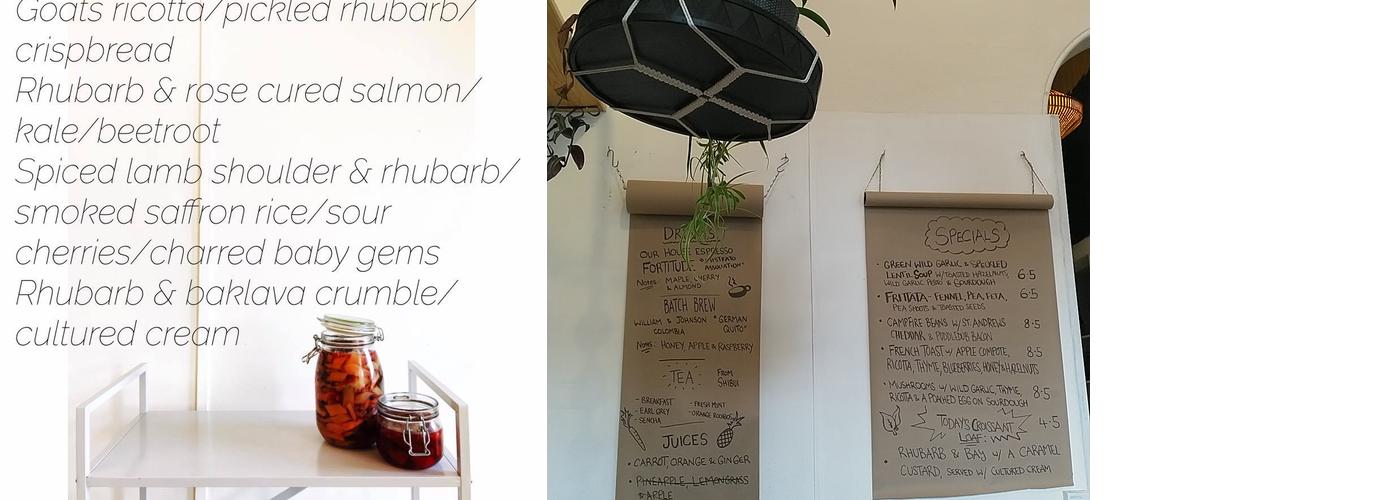 Goats ricotta/pickled rhubarb/
crispbread
Rhubarb & rose cured salmon/
kale/beetroot
Spiced lamb shoulder & rhubarb/
smoked saffron rice/sour
cherries/charred baby gems
Rhubarb & baklava crumble/
cultured cream
OUR HOUSE ESPRESSO
FORTITUDE
Notes: MAPLE, CHERRY
& ALMOND
BATCH BREW
WILLIAM & JOHNSON "GERMAN
COLOMBIA QUITO"
Notes: HONEY, APPLE & RASPBERRY
TEA FROM
SHIBUI
- BREAKFAST - FRESH MINT
- EARL GREY - ORANGE ROOIBOS
- SENCHA
JUICES
• CARROT, ORANGE & GINGER
• PINEAPPLE, LEMONGRASS
& APPLE
SPECIALS
• GREEN WILD GARLIC & SPECKLED
LENTIL SOUP W/TOASTED HAZELNUTS, 6.5
WILD GARLIC PESTO & SOURDOUGH
• FRITTATA - FENNEL, PEA, FETA, 6.5
PEA SHOOTS & TOASTED SEEDS
• CAMPFIRE BEANS W/ ST. ANDREWS 8.5
CHEDDAR & PUDDLEDUB BACON
• FRENCH TOAST W/ APPLE COMPOTE, 8.5
RICOTTA, THYME, BLUEBERRIES, HONEY & HAZELNUTS
• MUSHROOMS W/ WILD GARLIC, THYME, 8.5
RICOTTA & A POACHED EGG ON SOURDOUGH
TODAY'S CROISSANT 4.5
LOAF:
RHUBARB & BAY W/ A CARAMEL
CUSTARD, SERVED W/ CULTURED CREAM